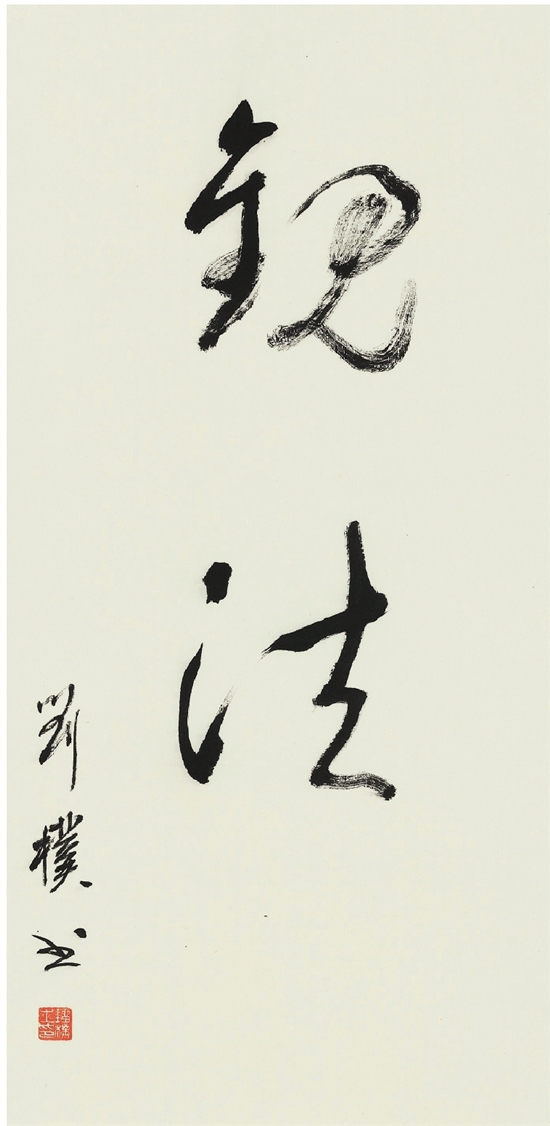 觀法
劉樸書